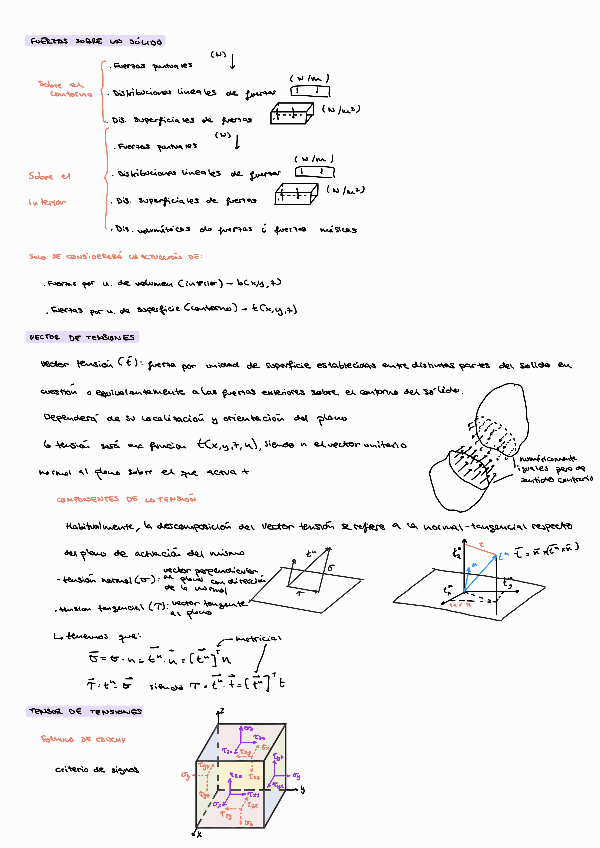 FUERZAS SOBRE UN SÓLIDO
Sobre el contorno
. Fuerzas puntuales (N)
. Distribuciones lineales de fuerzas (N/m)
. Dis. superficiales de fuerzas (N/m²)
Sobre el interior
. Fuerzas puntuales (N)
. Distribuciones lineales de fuerzas (N/m)
. Dis. superficiales de fuerzas (N/m²)
. Dis. volumétricas de fuerzas ó fuerzas másicas
SOLO SE CONSIDERARÁ LA ACTUACIÓN DE:
. Fuerzas por u. de volumen (interior) → b(x,y,z)
. Fuerzas por u. de superficie (contorno) → t(x,y,z)
VECTOR DE TENSIONES
Vector tensión (t): fuerza por unidad de superficie establecidas entre distintas partes del sólido en
cuestión o equivalentemente a las fuerzas exteriores sobre el contorno del sólido.
Dependerá de su localización y orientación del plano
la tensión será una función t(x,y,z,n), siendo n el vector unitario
normal al plano sobre el que actua t
numéricamente
iguales pero de
sentido contrario
COMPONENTES DE LA TENSIÓN
Habitualmente, la descomposición del vector tensión se refiere a la normal-tangencial respecto
del plano de actuación del mismo
- tensión normal (σ): vector perpendicular
al plano con dirección
de la normal
. tensión tangencial (τ): vector tangente
al plano
↳ tenemos que: matricial
TENSOR DE TENSIONES
FORMULA DE CAUCHY
criterio de signos
z
y
x